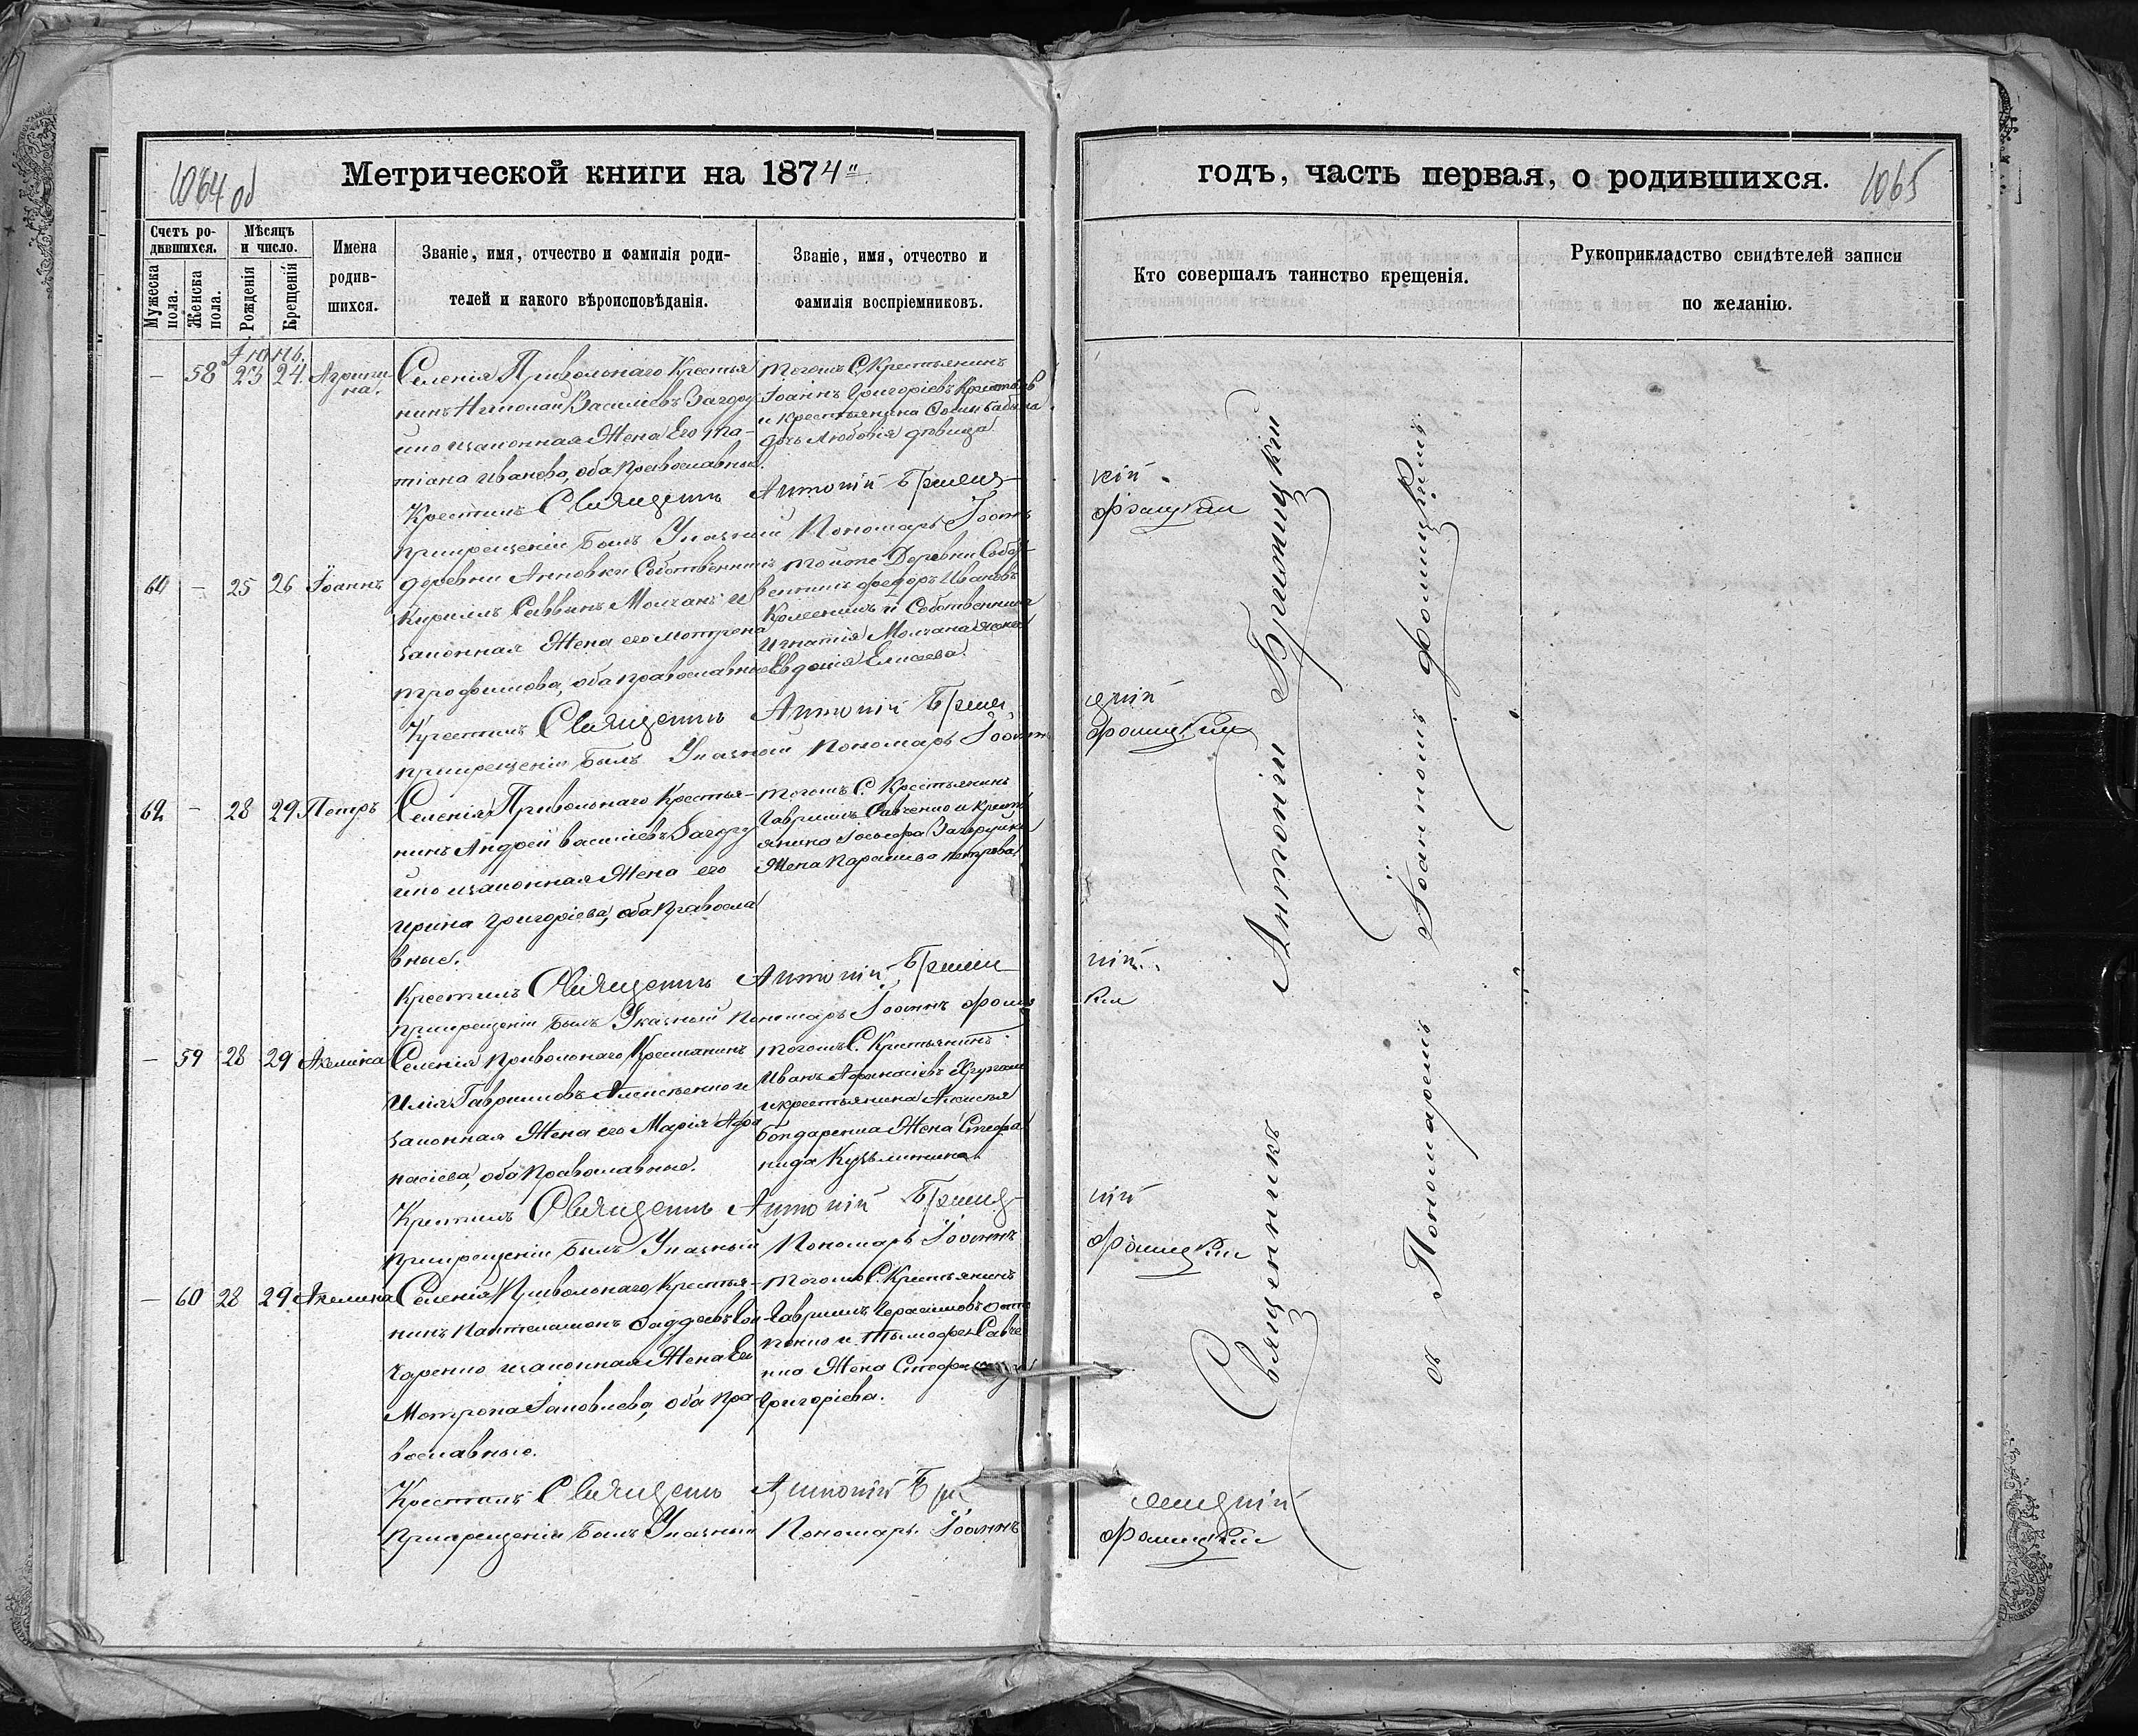 1064 об
Метрической книги на 1874
годъ, часть первая, о родившихся.
1065
Счетъ ро-
дившихся.
Мужеска пола.
Женска пола.
Мѣсяцъ
и число.
Рожденія
Крещенія
Имена
родив-
шихся.
Званіе, имя, отчество и фамилія роди-
телей и какого вѣроисповѣданія.
Званіе, имя, отчество и
фамилія воспріемниковъ.
Кто совершалъ таинство крещенія.
Рукоприкладство свидѣтелей записи
по желанію.
Іюнь.
— 58 23 24. Агрипи
на.
Селенія Привольнаго Крестья
нинъ Николай Васильевъ Загору
йко изаконная Жена Его Та-
тіана Иванова, оба Православные.
тогожъ С. Крестьянинъ
Іоаннъ Григоріевъ
и крестьянина
дочь Любовія дѣвица
Крестилъ Священникъ Антоній
прикрещеніи былъ Указный Пономарь Іоаннъ
61 — 25 26 Іоаннъ
деревни Анновки Собственникъ
Кирилъ Саввинъ Молчанъ и
законная Жена его Мотрона
Трофимова, оба православные
тойже Деревни Собст
венникъ Федоръ Ивановъ
и Собственника
Игнатія Молчана жена
Евдокія Елисеева.
Крестилъ Священникъ Антоній
прикрещеніи былъ Указный Пономарь Іоаннъ
62 — 28 29 Петръ
Селенія Привольнаго Крестья-
нинъ Андрей Васильевъ Загору
йко изаконная Жена его
Ирина Григоріева, оба Правосла
вные.
тогожъ С. Крестьянинъ
Гавриилъ Савченко и Крестья
янина Іосифа Загоруйка
Жена Параскева Петрова
Крестилъ Священникъ Антоній
прикрещеніи былъ Указный Пономарь Іоаннъ
— 59 28 29 Акелина
Селенія Привольнаго Крестьянинъ
Илія Гаврииловъ Алексѣенко и
законная Жена его Марія Афа
насіева, оба Православные.
тогожъ С. Крестьянинъ
Иванъ Афанасіевъ
и крестьянина
Бондаренка Жена Стефа
нида Кузьминична.
Крестилъ Священникъ Антоній
прикрещеніи былъ Указный Пономарь Іоаннъ
— 60 28 29. Акелина
Селенія Привольнаго Крестья-
нинъ Пантелеимонъ Фаддеевъ Гон
чаренко изаконная Жена Его
Мотрона Іаковлева, оба Пра-
вославные.
тогожъ С. Крестьянинъ
Гавриилъ Герасимовъ
и Тимофея Савче
нка Жена
Григоріева.
Крестилъ Священникъ Антоній
прикрещеніи былъ Указный Пономарь Іоаннъ
Священникъ Антоній
Пономаремъ Іоанномъ